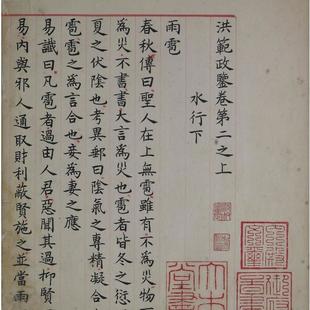 洪範政鑒卷第二之上
水行下
雨雹
春秋傳曰聖人在上無雹雖有不為災物一
為災不書書大言為災也雹者皆冬之愆
夏之伏陰也考異郵曰陰氣之專精凝合
雹雹之為言合也妾為妻之應
易讖曰凡雹者過由人君惡聞其過抑賢
易內與邪人通取財利蔽賢施之並當雨